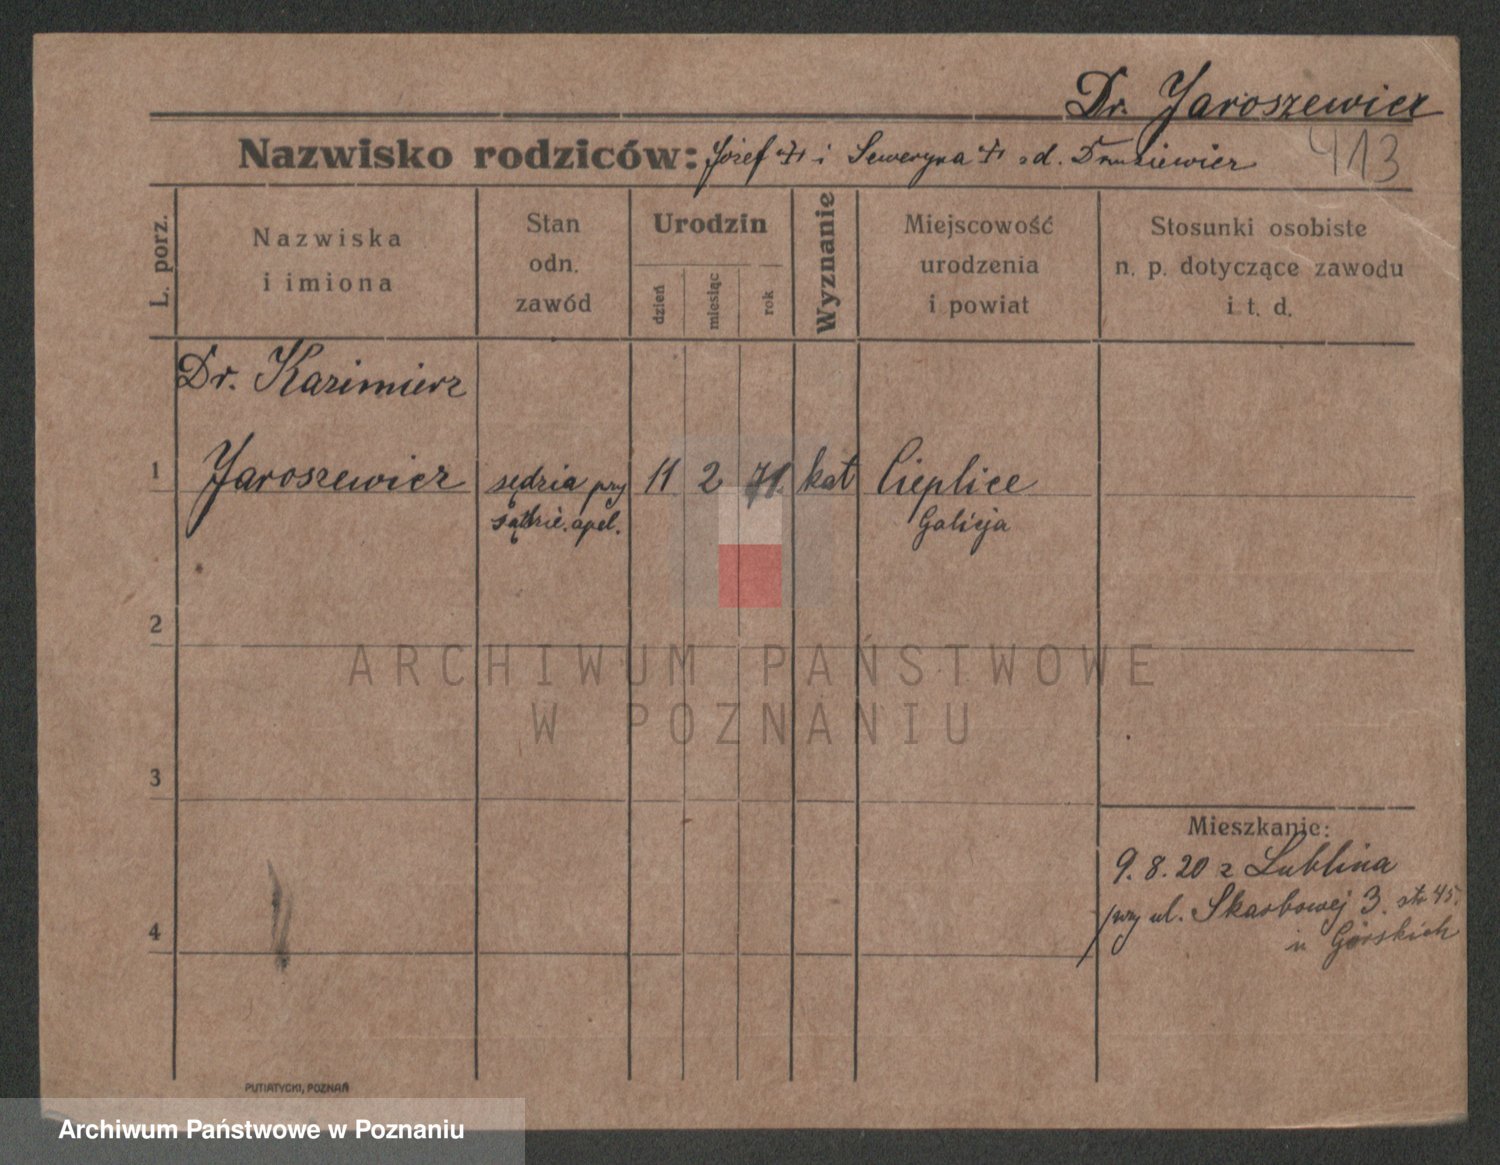 Dr. Jaroszewicz
413
Nazwisko rodziców: Józef i Seweryna z d.
L. porz.
Nazwiska
i imiona
Stan
odn.
zawód
Urodzin
dzień
miesiąc
rok
Wyznanie
Miejscowość
urodzenia
i powiat
Stosunki osobiste
n. p. dotyczące zawodu
i t. d.
Dr. Kazimierz
1 Jaroszewicz sędzia przy 11 2 71. kat Cieplice
sądzie. apel. Galicja
2
ARCHIWUM PAŃSTWOWE
W POZNANIU
3
Mieszkanie:
9. 8. 20 z Lublina
przy ul. Skarbowej 3. 45.
4
u Górskich
PUTIATYCKI, POZNAŃ
Archiwum Państwowe w Poznaniu